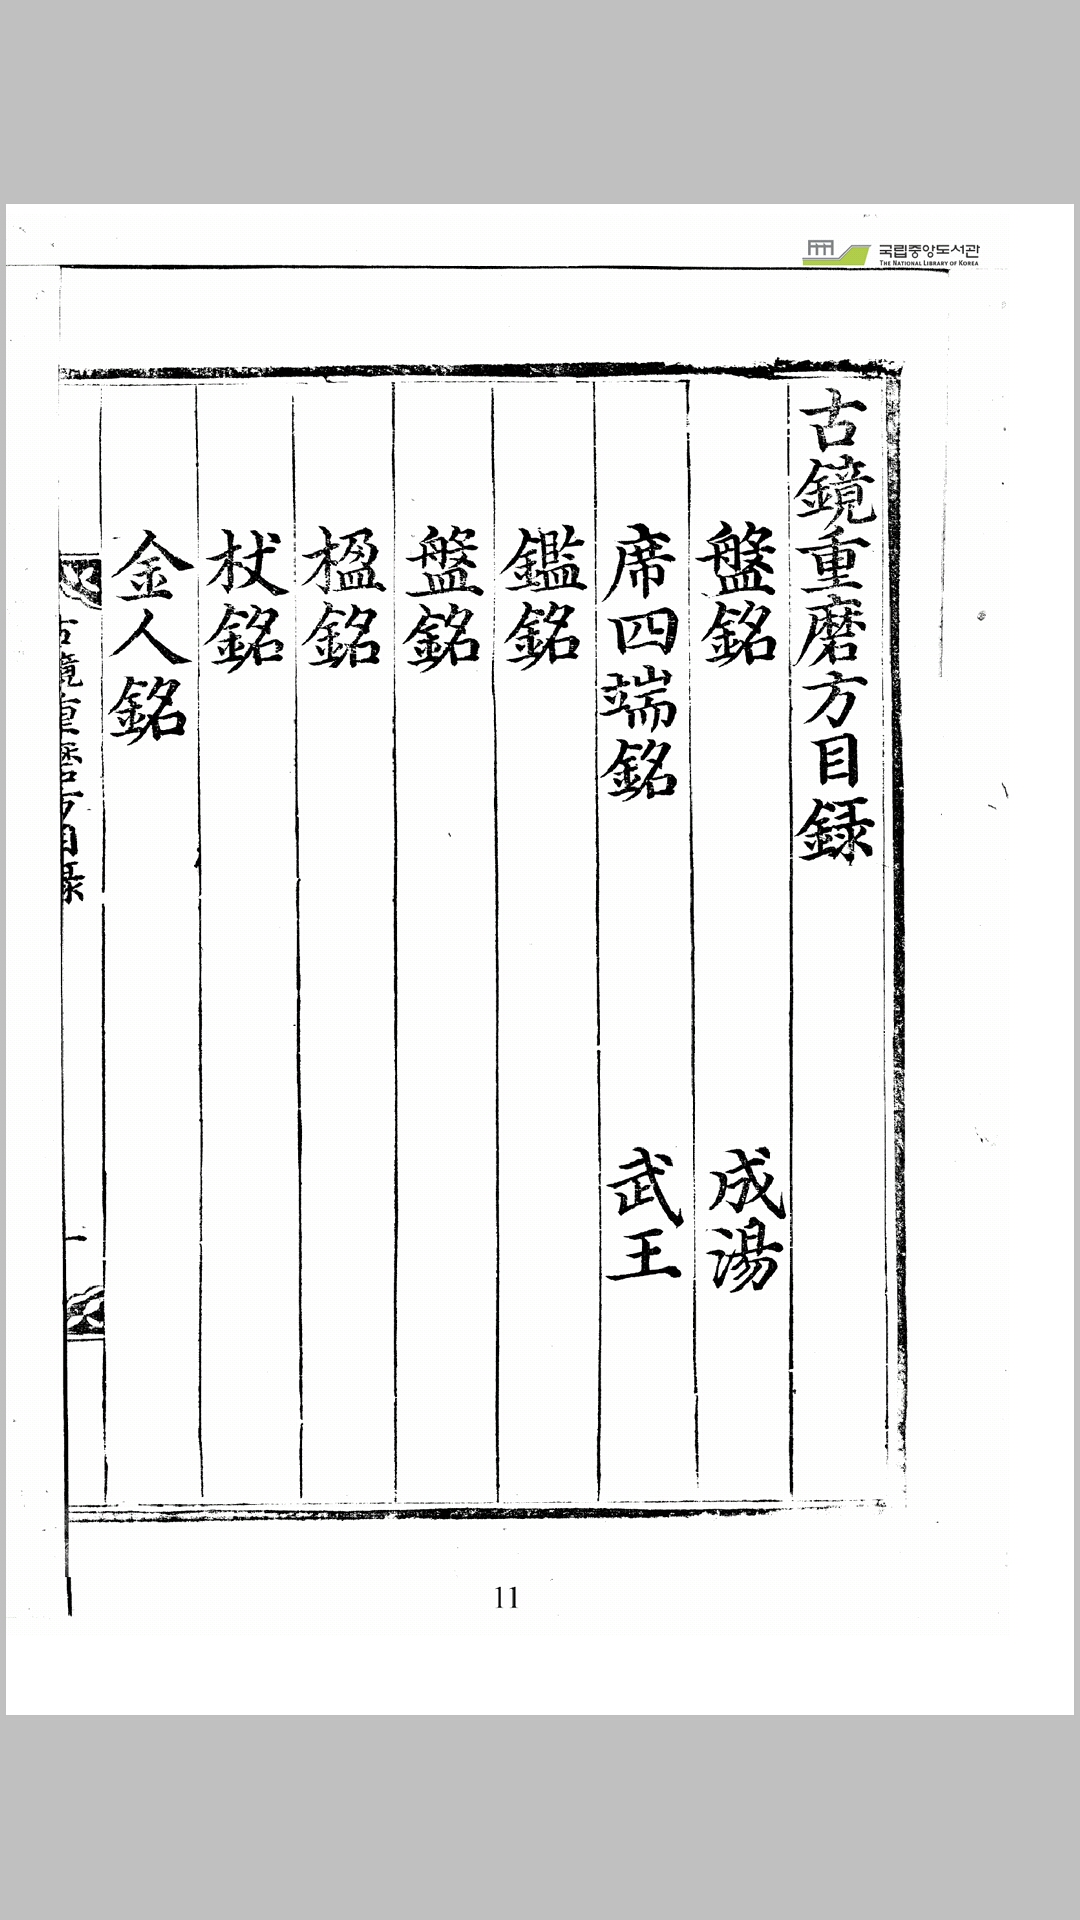 국립중앙도서관
THE NATIONAL LIBRARY OF KOREA
古鏡重磨方目録
盤銘 成湯
席四端銘 武王
鑑銘
盤銘
楹銘
杖銘
金人銘
古鏡重磨方目录
一
11